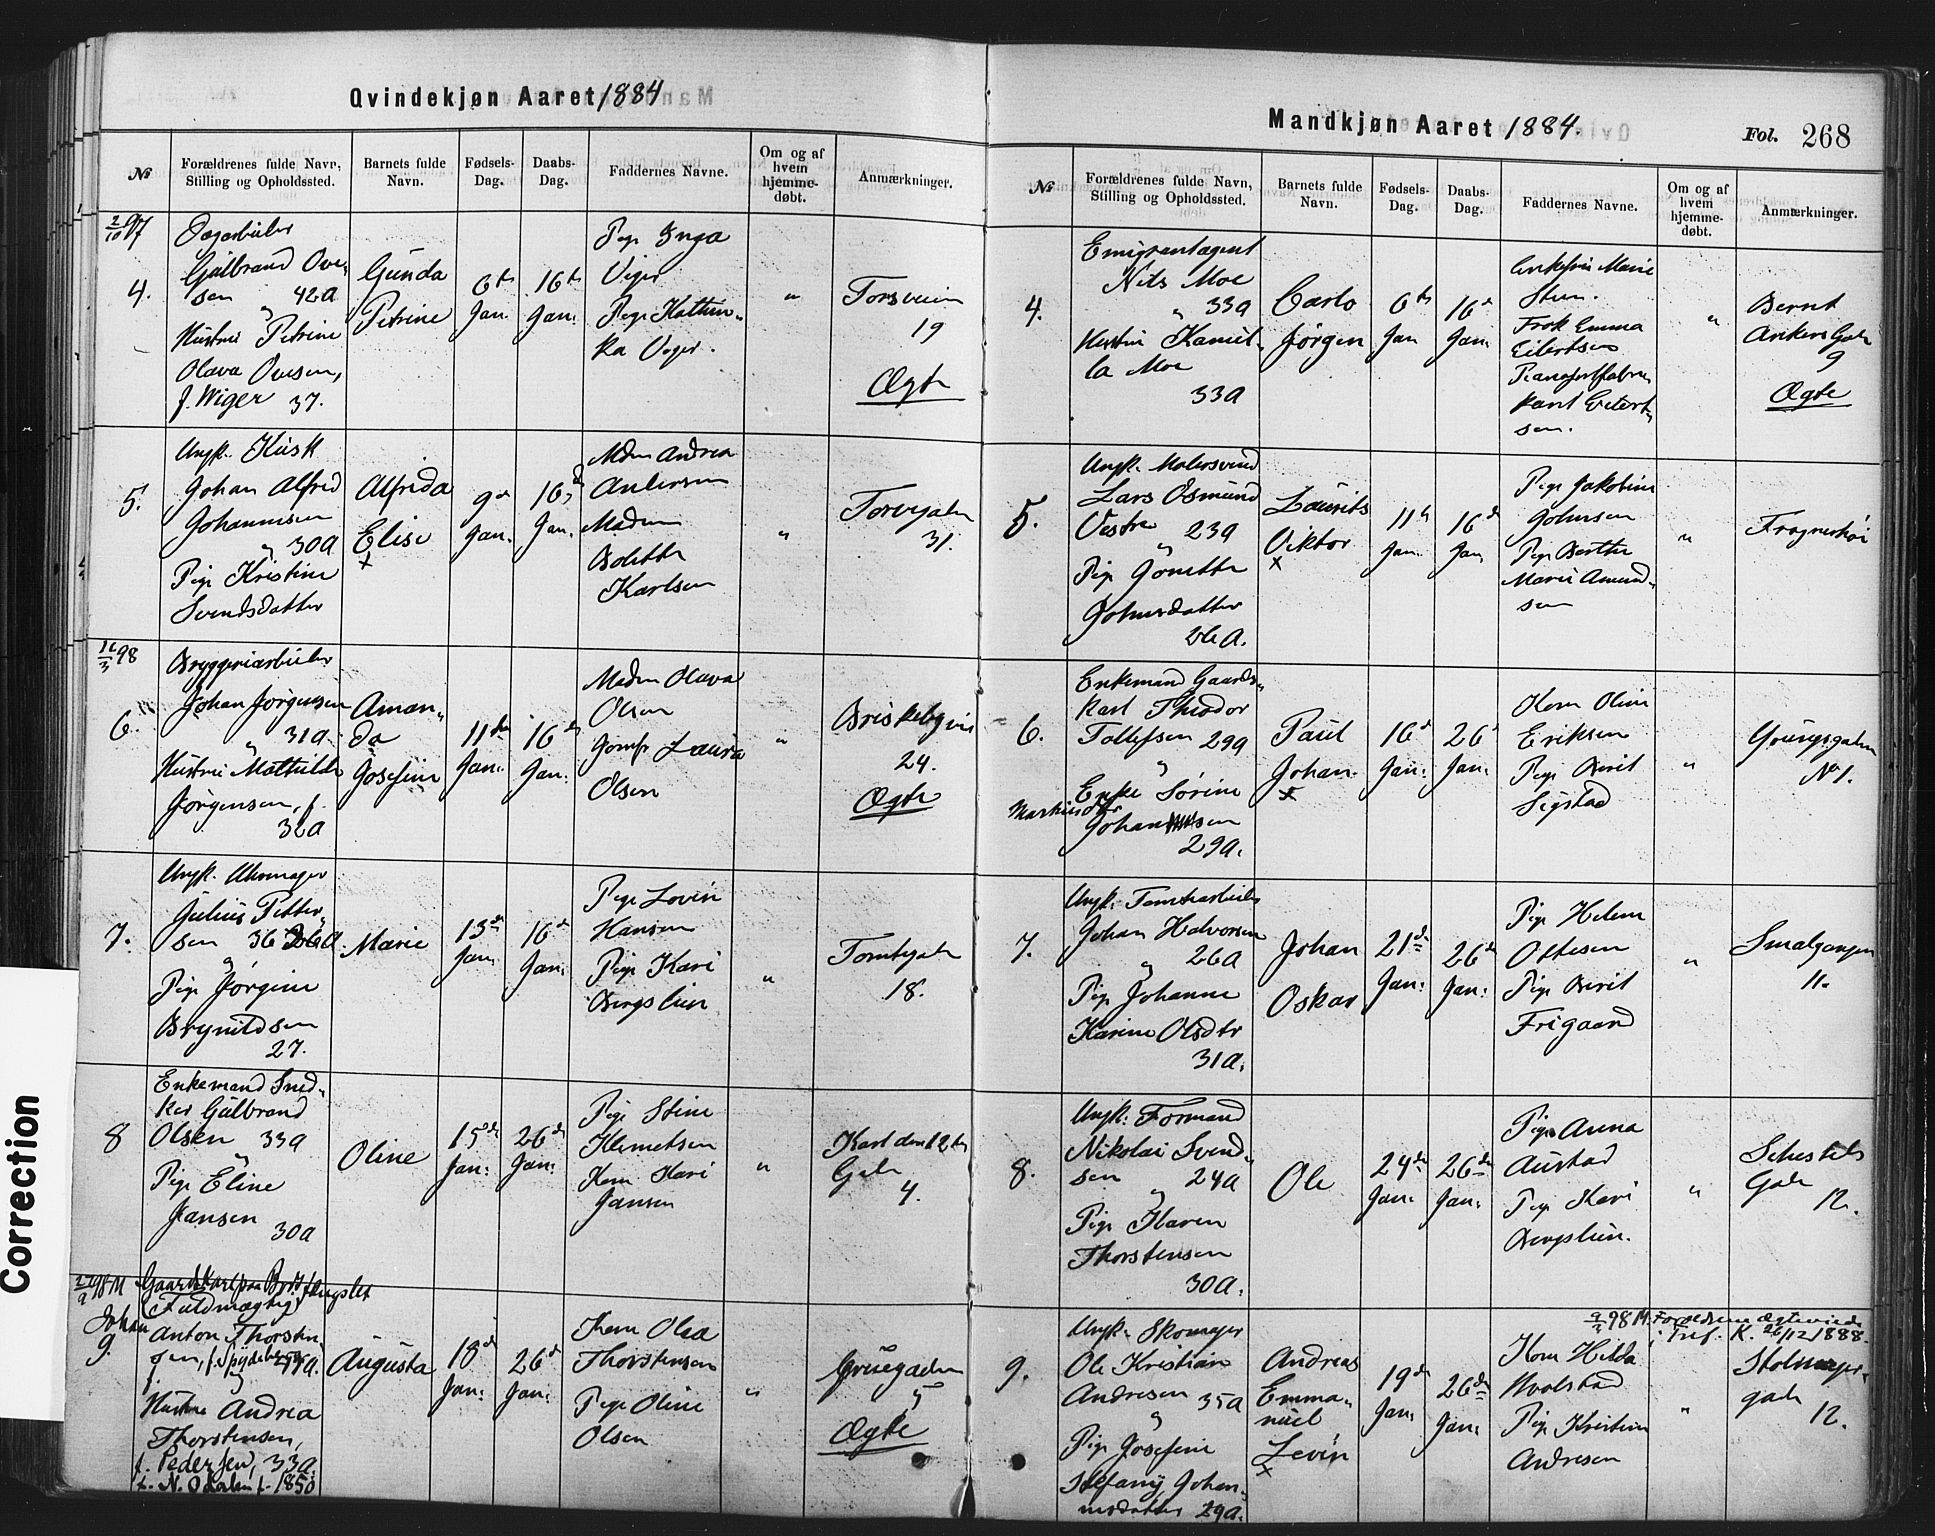 Qvindekjøn Aaret 1884
№
Forældrenes fulde Navn,
Stilling og Opholdssted.
Barnets fulde
Navn.
Fødsels-
Dag.
Daabs-
Dag.
Faddernes Navne.
Om og af
hvem
hjemme-
døbt.
Anmærkninger.
2/10 97
4.
Gulbrand Ove-
sen 42a
Hustru Petrine
Olava Ovesen,
f. Wiger 37.
Gunda
Petrine
6te
Jan.
16de
Jan.
Pige Inga
Viger
Pige Kathin-
ka Viger.
"
Torsveien
19
Ægte
5.
Ungk. Kusk
Johan Alfred
Johannesen
30a
Pige Kristine
Svendsdatter
Alfrida
Elise
x
9de
Jan.
16de
Jan.
Mdm Andrea
Andersen
Madm
Bolette
Karlsen
"
Torvegaden
31.
98
6.
Bryggeriarbeider
Johan Jørgensen
31a
Hustru Mathilde
Jørgensen, f.
32a
Aman-
da
Josefine
11te
Jan.
16de
Jan.
Madm Olava
Olsen
Jomfr Laura
Olsen
"
Briskebyvei
24.
Ægte
7.
Ungk. Uhrmager
Julius Petter-
sen 36
Pige Jørgine
Brynildsen
27.
Marie
13de
Jan.
16de
Jan.
Pige Lovise
Hansen
Pige Kari
Bergslien
"
Tomtegaden
18.
8
Enkemand Sned-
ker Gulbrand
Olsen 33a
Pige Eline
Jansen
30a
Oline
15de
Jan.
26de
Jan.
Pige Stine
Klemetsen
Kone Kari
Jansen
"
Karl den 12tes
Gade
4.
98 M
Johan
9.
Gaardskarl paa Bodsfængslet
(Fuldmægtig)
Anton Thorsten-
sen, f. Spydeberg
Hustru Andrea
Thorstensen,
f. Pedersen, 33a.
f. N. Odalen f. 1850
Augusta
18de
Jan.
26de
Jan.
Kone Olea
Thorstensen
Pige Oline
Olsen
"
Gruegaden
5
Ægte
Mandkjøn Aaret 1884.
Fol. 268
№
Forældrenes fulde Navn,
Stilling og Opholdssted.
Barnets fulde
Navn.
Fødsels-
Dag.
Daabs-
Dag.
Faddernes Navne.
Om og af
hvem
hjemme-
døbt.
Anmærkninger.
4.
Emigrantagent
Nils Moe
33a
Hustru Kamil-
la Moe
33a
Carlo
Jørgen
6te
Jan
16de
Jan.
Enkefru Marie
Steen.
Frøk Emma
Eilertsen
Pianofortfabri-
kant Eilert-
sen.
"
Bernt
Ankers Gade
9
Ægte
5.
Ungk. Malersvend
Lars Osmund
Vestre 23a
Pige Jonette
Johnsdatter
26a.
Laurits
Viktor
x
11te
Jan.
16de
Jan.
Pige Jakobine
Johnsen
Pige Berthe
Marie Amund-
sen
"
6.
Enkemand Gaards-
karl Theodor
Tollefsen 29a
Enke Sørine
Martinsdtr
Johansen
29a.
Paul
Johan
x
16de
Jan.
26de
Jan.
Kone Oline
Eriksen
Pige Berit
Sigstad
"
Youngsgaden
No 1.
7.
Ungk. Tomtearbeider
Johan Halvorsen
26a
Pige Johanne
Karine Olsdtr
31a.
Johan
Oskar
21de
Jan.
26de
Jan.
Pige Helene
Ottesen
Pige Berit
Frigaard
"
Smalgangen
11.
8.
Ungk. Formand
Nikolai Svend-
sen 24a
Pige Karen
Thorstensen
30a.
Ole
24de
Jan.
26de
Jan.
Pige Anna
Austad
Pige Kari
Bergslien.
"
Sehesteds
Gade
12.
9.
Ungk. Skomager
Ole Kristian
Andresen 35a
Pige Josefine
Stefany Johan-
nesdatter 29a.
Andreas
Emma-
nuel
Levin
x
19de
Jan.
26de
Jan.
Kone Hilda
Hvalstad
Pige Kristine
Andresen
"
98 M. Forældrene ægteviede
i Tref. K. 26/12 1888.
Stolmager-
gade
12.
Correction